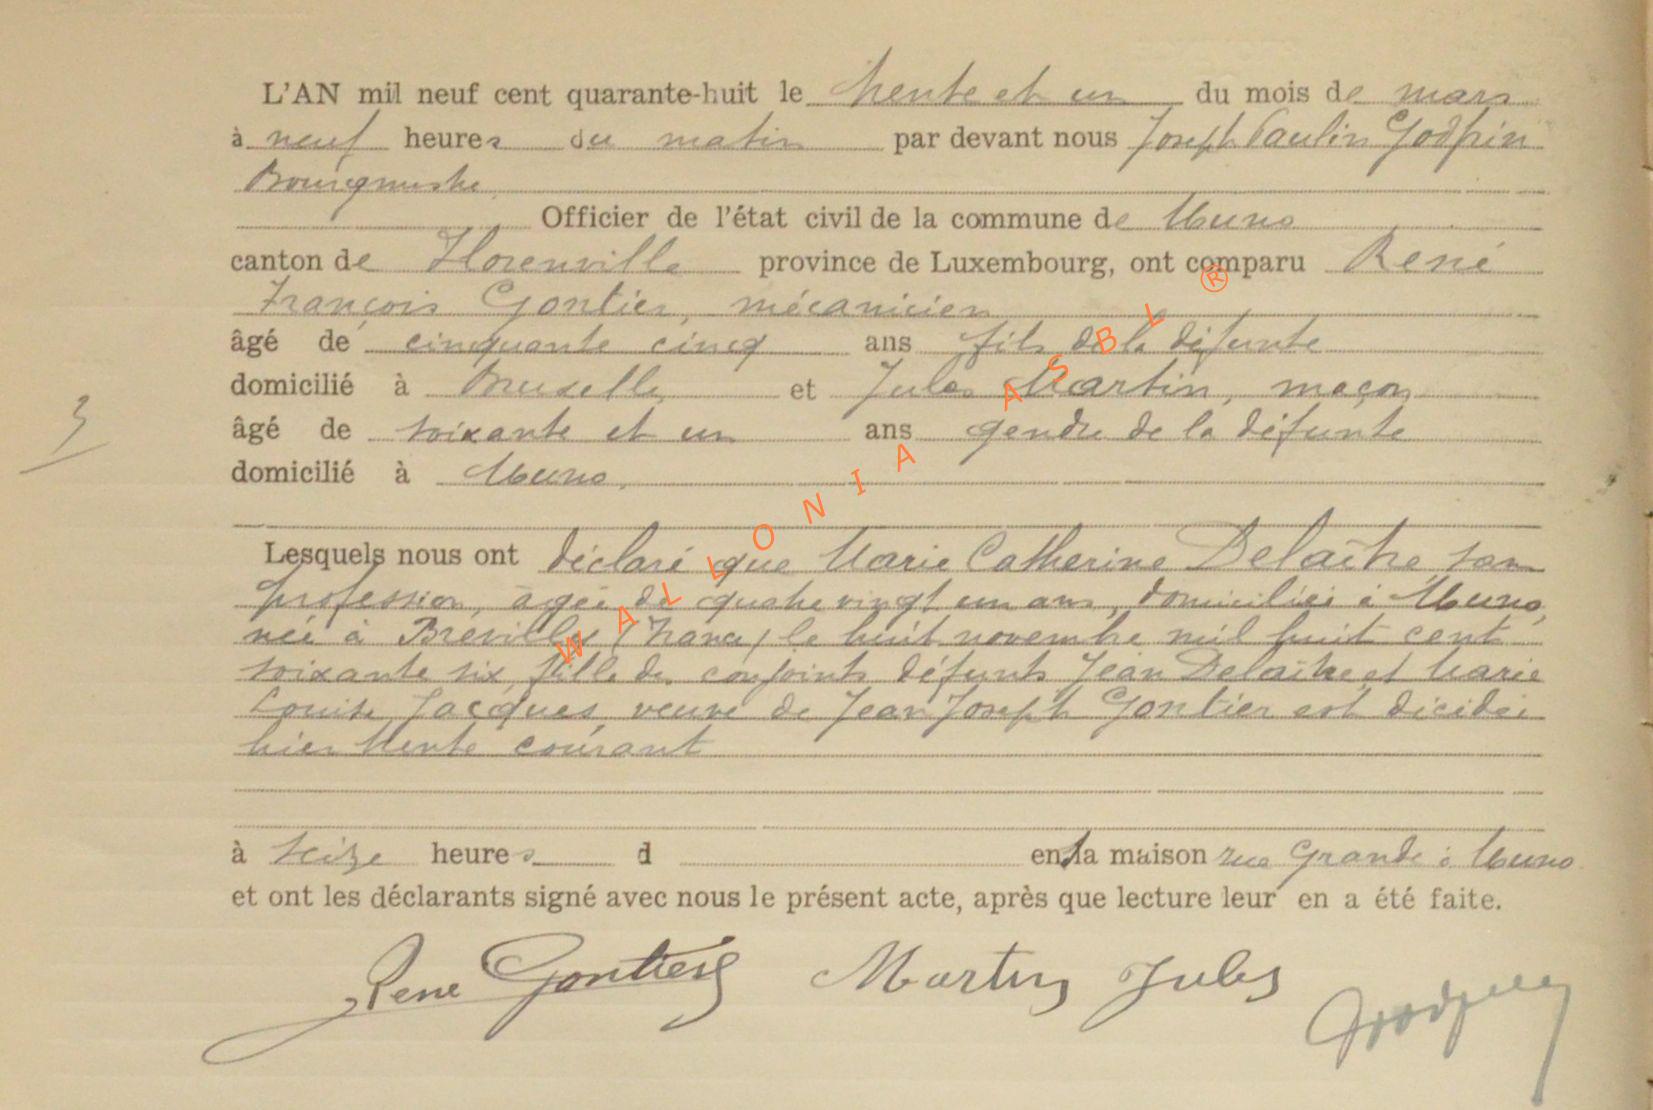 L'AN mil neuf cent quarante-huit le trente et un du mois de mars
à neuf heures du matin par devant nous Joseph Paulin Godfrin
Bourgmestre
Officier de l'état civil de la commune de Muno
canton de Florenville province de Luxembourg, ont comparu René
François Gontier, mécanicien
âgé de cinquante cinq ans fils de la défunte
domicilié à Bruxelles et Jules Martin, maçon
âgé de soixante et un ans gendre de la défunte
3
domicilié à Muno.
Lesquels nous ont déclaré que Marie Catherine Delaître, sans
profession, âgée de quatre vingt un ans, domiciliée à Muno,
née à Breville (France) le huit novembre mil huit cent
soixante six, fille des conjoints défunts Jean Delaître et Marie
Louise Jacques, veuve de Jean Joseph Gontier est décédée
hier trente courant
à seize heures d en la maison rue Grande à Muno
et ont les déclarants signé avec nous le présent acte, après que lecture leur en a été faite.
René Gontier Martin Jules Godfrin
WALLONIA ASBL ®